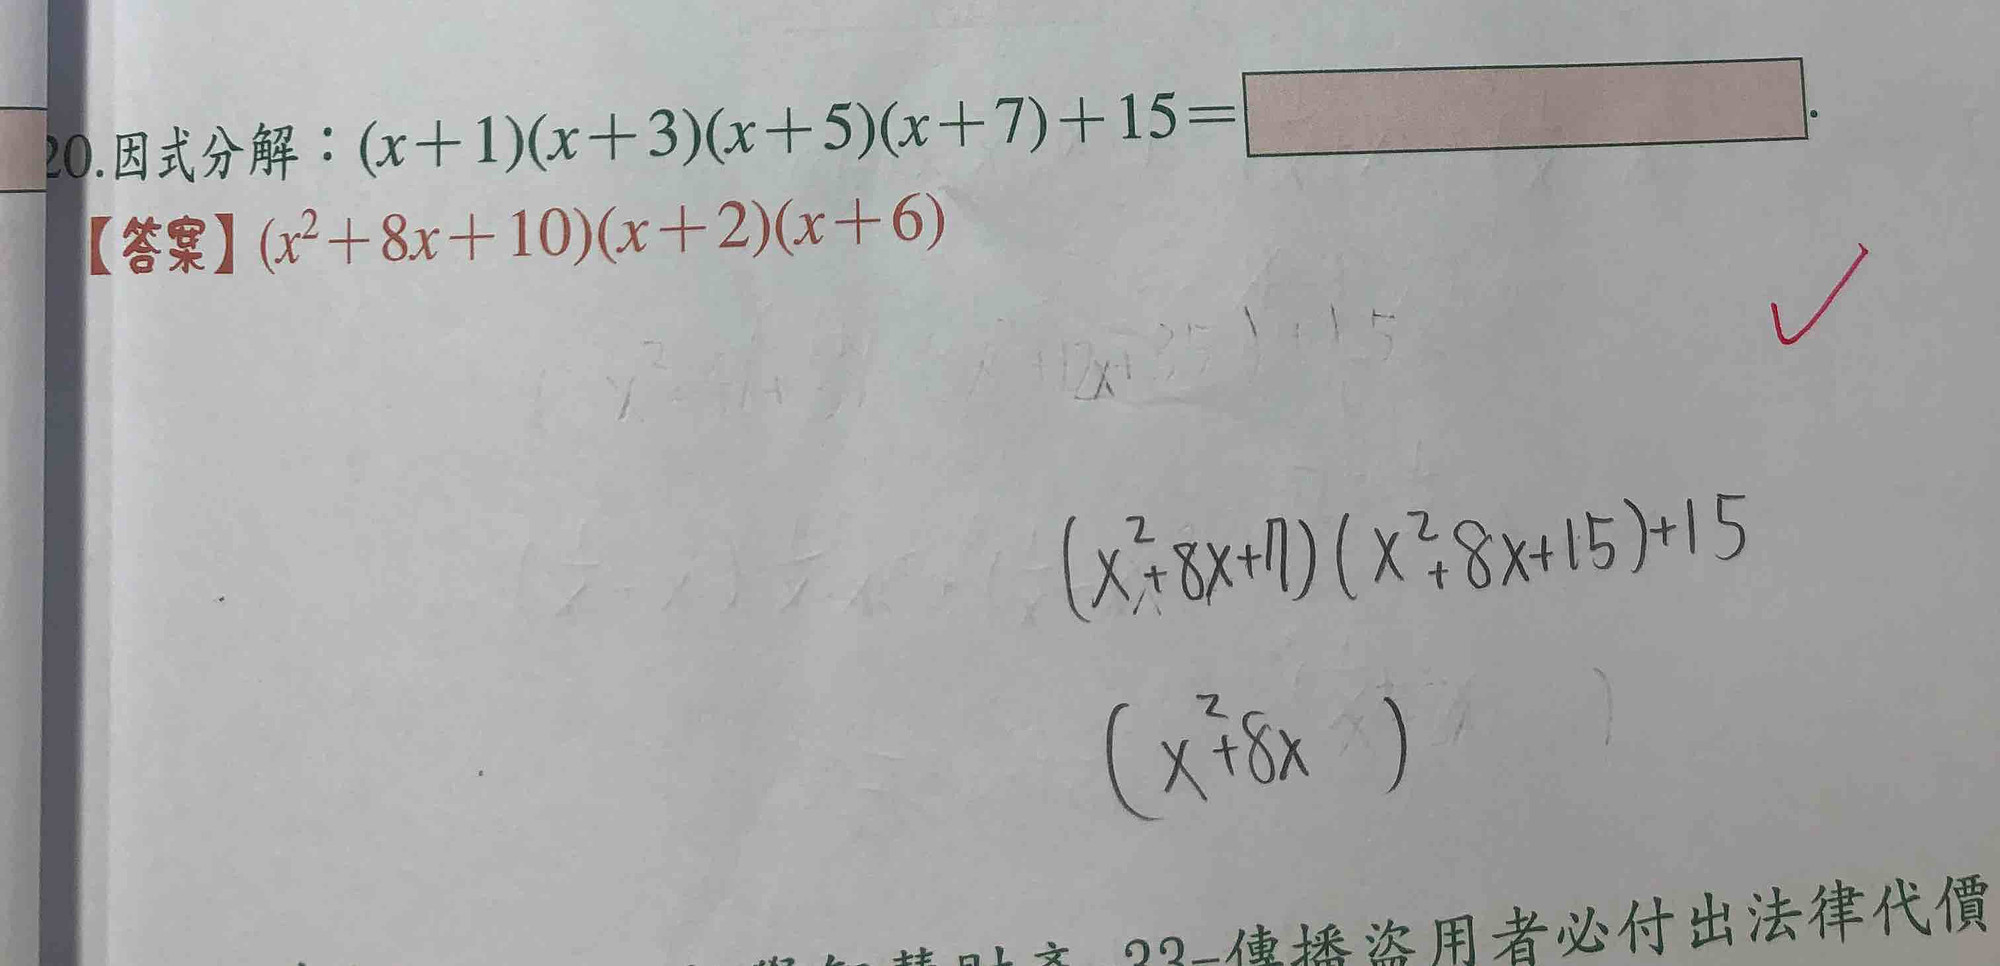 20.因式分解：(x+1)(x+3)(x+5)(x+7)+15=
【答案】(x²+8x+10)(x+2)(x+6)
(x²+8x+7)(x²+8x+15)+15
(x²+8x )
23-傳播盜用者必付出法律代價